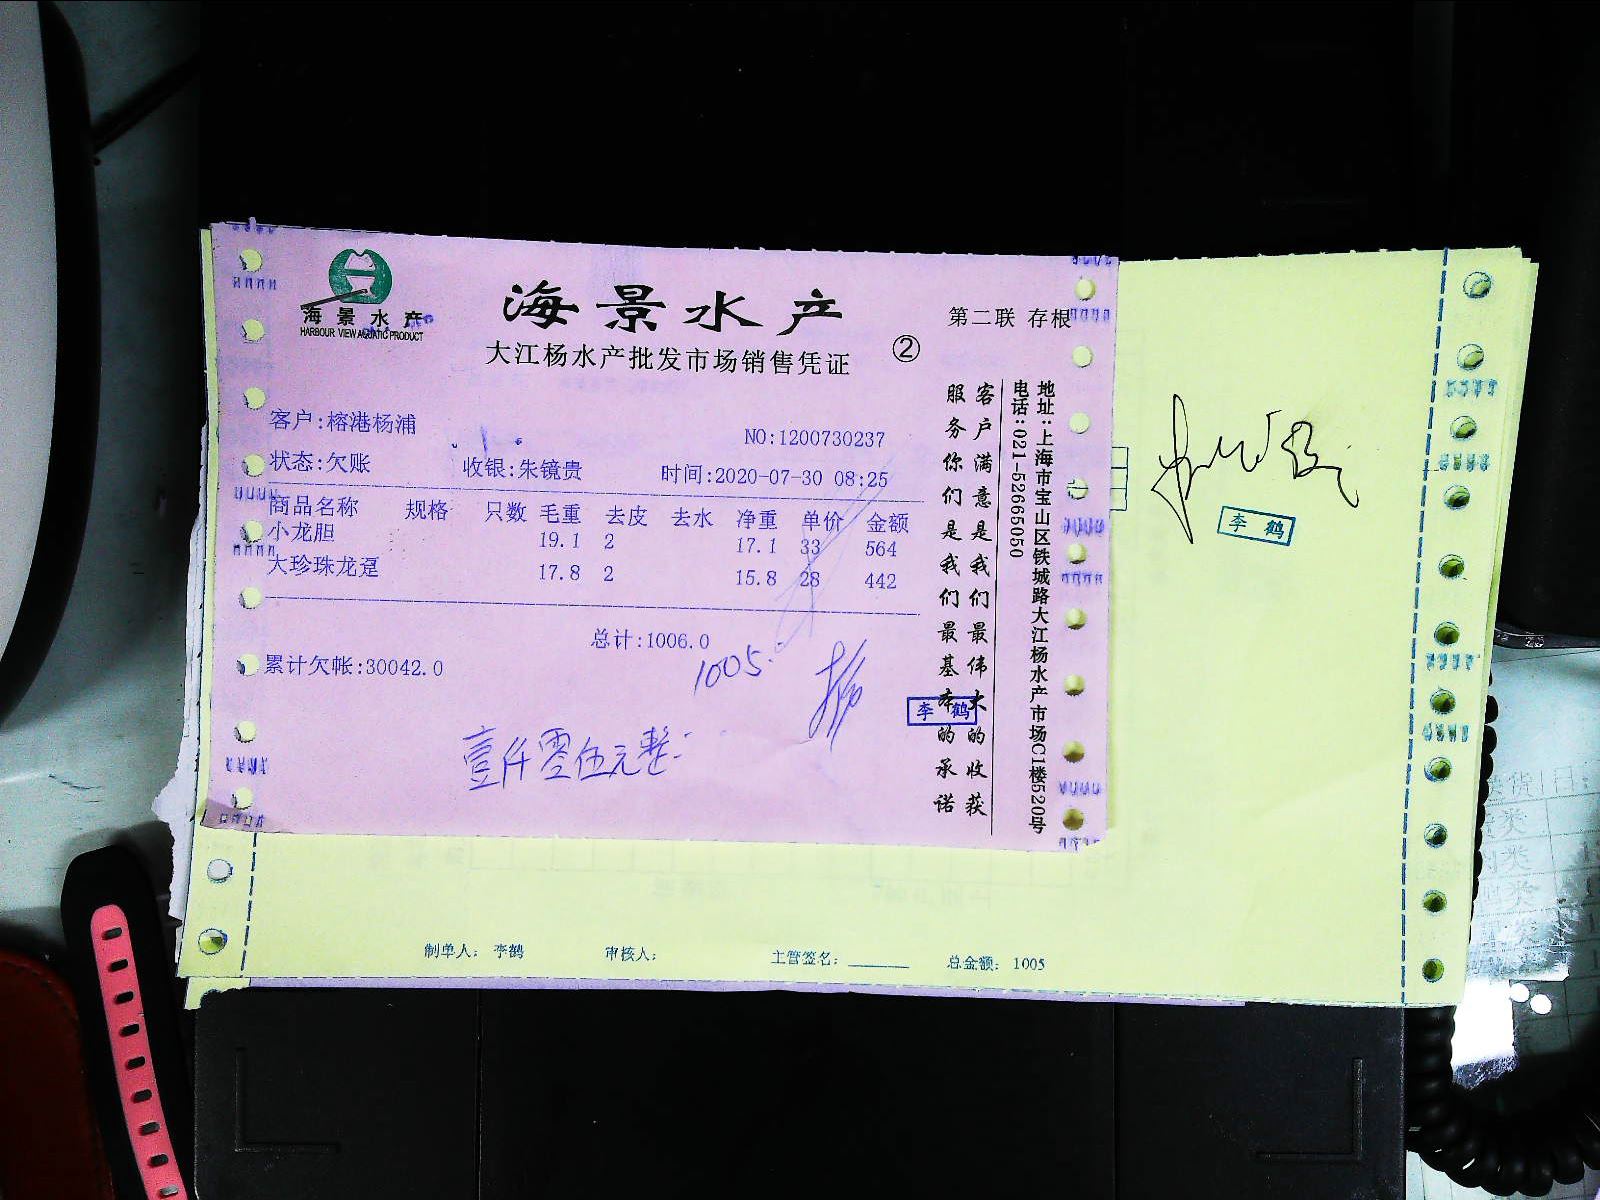 海景水产
HARBOUR VIEW AQUATIC PRODUCT
海景水产
第二联 存根
大江杨水产批发市场销售凭证 ②
客户:榕港杨浦
NO:1200730237
状态:欠账 收银:朱镜贵 时间:2020-07-30 08:25
商品名称 规格 只数 毛重 去皮 去水 净重 单价 金额
小龙胆 19.1 2 17.1 33 564
大珍珠龙趸 17.8 2 15.8 28 442
总计:1006.0
累计欠帐:30042.0
1005.
壹仟零伍元整
李鹤
客户满意是我们最伟大的收获
服务你们是我们最基本的承诺
地址:上海市宝山区铁城路大江杨水产市场C1楼520号
电话:021-52665050
李鹤
制单人: 李鹤 审核人: 主管签名: 总金额: 1005